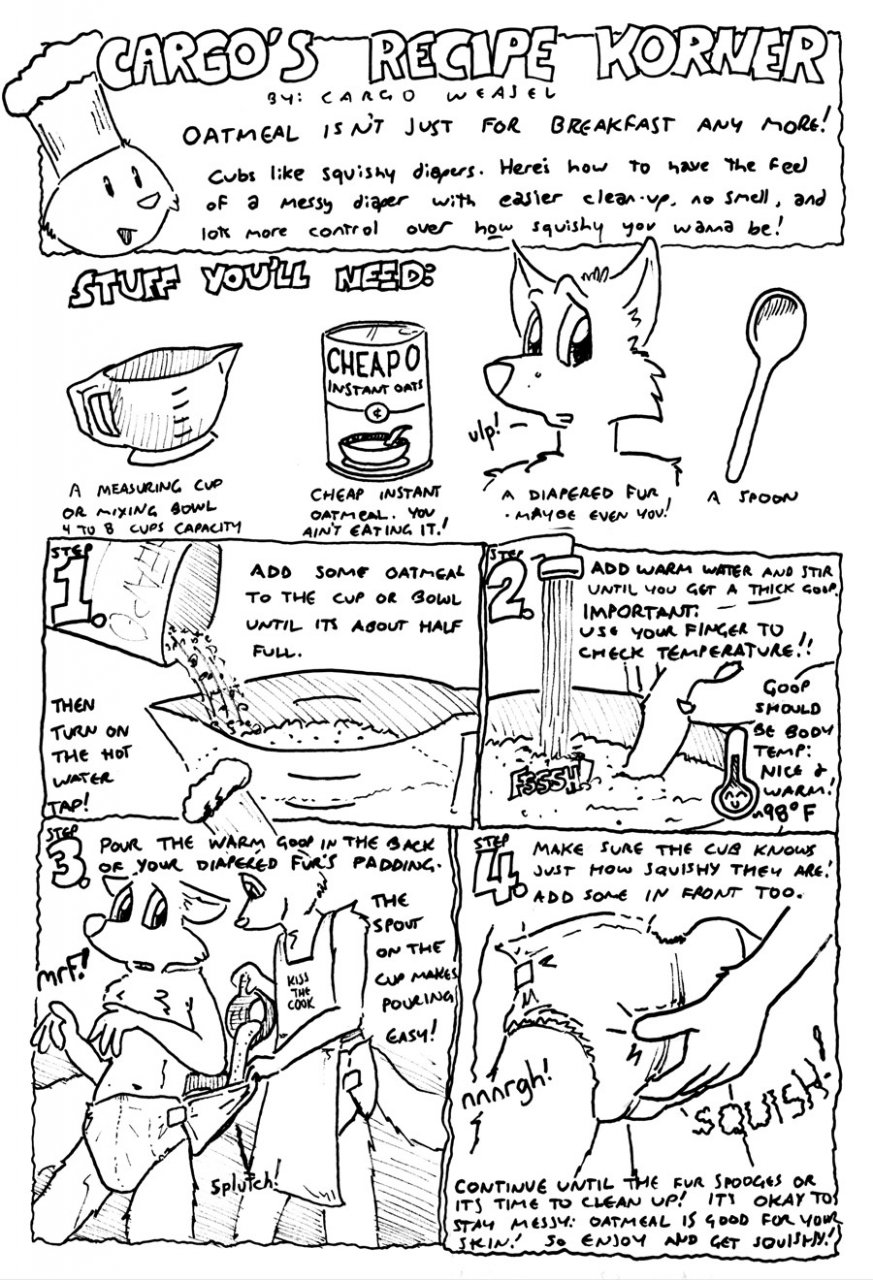 CARGO'S RECIPE KORNER
BY: CARGO WEASEL
OATMEAL ISN'T JUST FOR BREAKFAST ANY MORE!
Cubs like squishy diapers. Here's how to have the feel
of a messy diaper with easier clean-up, no smell, and
lots more control over how squishy you wanna be!
STUFF YOU'LL NEED:
A MEASURING CUP
OR MIXING BOWL
4 TO 8 CUPS CAPACITY
CHEAPO
INSTANT OATS
¢
CHEAP INSTANT
OATMEAL. YOU
AIN'T EATING IT!
ulp!
A DIAPERED FUR
- MAYBE EVEN YOU!
A SPOON
STEP
1.
CHEAPO
ADD SOME OATMEAL
TO THE CUP OR BOWL
UNTIL ITS ABOUT HALF
FULL.
THEN
TURN ON
THE HOT
WATER
TAP!
STEP
2.
ADD WARM WATER AND STIR
UNTIL YOU GET A THICK GOOP.
IMPORTANT:
USE YOUR FINGER TO
CHECK TEMPERATURE!!
GOOP
SHOULD
BE BODY
TEMP:
NICE &
WARM!
~98°F
FSSSH!
STEP
3.
POUR THE WARM GOOP IN THE BACK
OF YOUR DIAPERED FUR'S PADDING.
THE
SPOUT
ON THE
CUP MAKES
POURING
EASY!
mrf!
KISS
THE
COOK
Splutch!
STEP
4.
MAKE SURE THE CUB KNOWS
JUST HOW SQUISHY THEY ARE!
ADD SOME IN FRONT TOO.
nnnrgh!
SQUISH!
CONTINUE UNTIL THE FUR SPOOGES OR
ITS TIME TO CLEAN UP! ITS OKAY TO
STAY MESSY: OATMEAL IS GOOD FOR YOUR
SKIN! SO ENJOY AND GET SQUISHY!